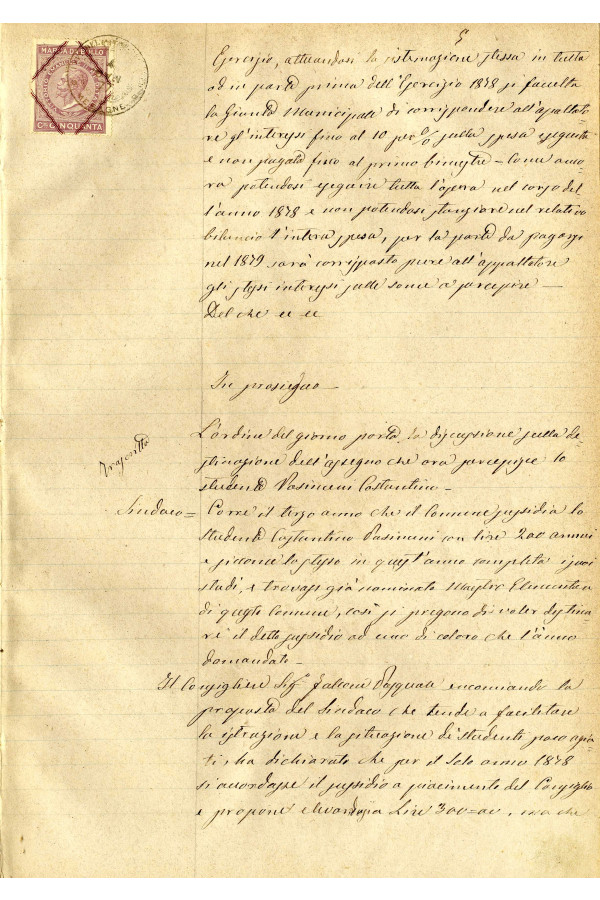 5
MARCA DA BOLLO
Cmi CINQUANTA
Esercizio, attuandosi la sistemazione stessa in tutto
od in parte prima dell'Esercizio 1878 si facolta
la Giunta Municipale di corrispondere all'appaltato=
re gl'interessi fino al 10 per % sulla spesa eseguita
e non pagata fino al primo bimestre – Come anco=
ra potendosi eseguire tutta l'opera nel corso del
l'anno 1878 e non potendosi stanziare nel relativo
bilancio l'intera spesa, per la parte da pagarsi
nel 1879 sarà corrisposto pure all'appaltatore
gli stessi interessi sulle somme a percepire –
Del che
In prosieguo –
L'ordine del giorno porta la discussione sulla de=
stinazione dell'assegno che ora percepisce lo
studente Costantino –
Trascritto
Sindaco = Corre il terzo anno che il Comune sussidia lo
studente Costantino con lire 200 annui
e siccome lo stesso in quest'anno completa i suoi
studi, e trovasi già nominato Maestro Elementare
di questo Comune, così si pregono di voler destina
re il detto sussidio ad uno di coloro che l'anno
domandato –
Il Consigliere Sigr. Falconi Pasquale encomiando la
proposta del Sindaco che tende a facilitare
la istruzione e la situazione de' studenti poco agia=
ti, ha dichiarato che per il solo anno 1878
si accordasse il sussidio a piacimento del Consiglio
e propone elevarsi a Lire 300=00, ma che